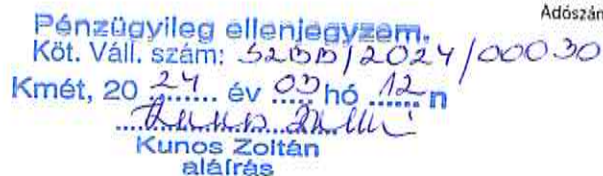 Adószám
Pénzügyileg ellenjegyzem.
Köt. Váll. szám: S2BB/2024/00030
Kmét, 20 24 év 03 hó 12 n
Kunos Zoltán
aláírás